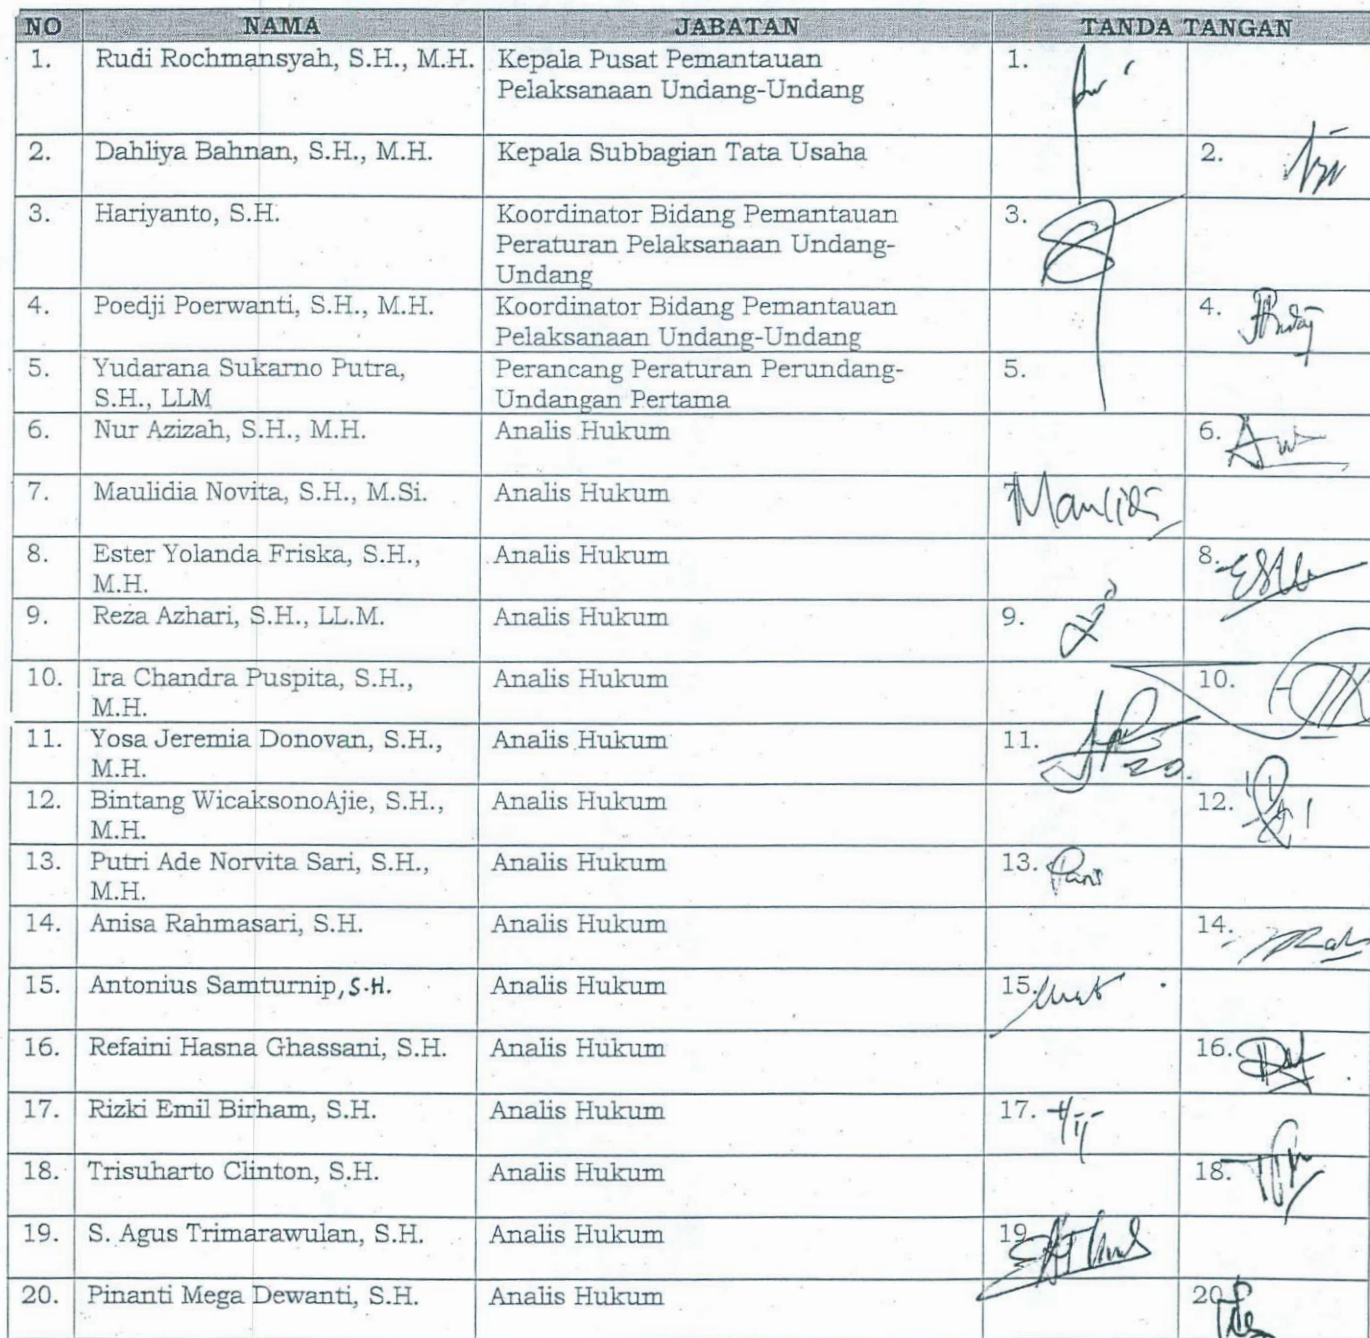 NO NAMA JABATAN TANDA TANGAN
1. Rudi Rochmansyah, S.H., M.H. Kepala Pusat Pemantauan 1.
Pelaksanaan Undang-Undang
2. Dahliya Bahnan, S.H., M.H. Kepala Subbagian Tata Usaha 2.
3. Hariyanto, S.H. Koordinator Bidang Pemantauan 3.
Peraturan Pelaksanaan Undang-
Undang
4. Poedji Poerwanti, S.H., M.H. Koordinator Bidang Pemantauan 4.
Pelaksanaan Undang-Undang
5. Yudarana Sukarno Putra, Perancang Peraturan Perundang- 5.
S.H., LLM Undangan Pertama
6. Nur Azizah, S.H., M.H. Analis Hukum 6.
7. Maulidia Novita, S.H., M.Si. Analis Hukum 7.
8. Ester Yolanda Friska, S.H., Analis Hukum 8.
M.H.
9. Reza Azhari, S.H., LL.M. Analis Hukum 9.
10. Ira Chandra Puspita, S.H., Analis Hukum 10.
M.H.
11. Yosa Jeremia Donovan, S.H., Analis Hukum 11.
M.H.
12. Bintang WicaksonoAjie, S.H., Analis Hukum 12.
M.H.
13. Putri Ade Norvita Sari, S.H., Analis Hukum 13.
M.H.
14. Anisa Rahmasari, S.H. Analis Hukum 14.
15. Antonius Samturnip, S.H. Analis Hukum 15.
16. Refaini Hasna Ghassani, S.H. Analis Hukum 16.
17. Rizki Emil Birham, S.H. Analis Hukum 17.
18. Trisuharto Clinton, S.H. Analis Hukum 18.
19. S. Agus Trimarawulan, S.H. Analis Hukum 19
20. Pinanti Mega Dewanti, S.H. Analis Hukum 20